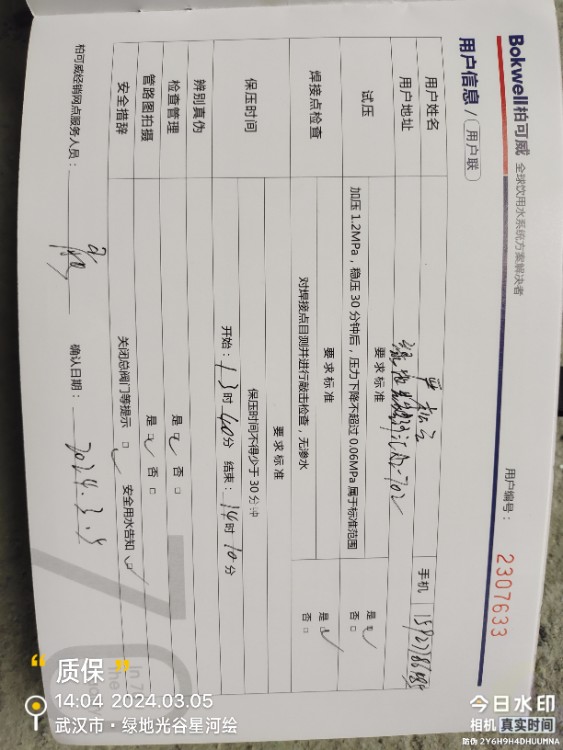 Bokwell柏可威 全球饮用水系统方案解决者
用户信息 / 用户联
用户编号： 2307633
用户姓名 手机
用户地址
试压 要求标准
加压 1.2MPa，稳压 30 分钟后，压力下降不超过 0.06MPa 属于标准范围 是 □ 否 □
焊接点检查 要求标准
对焊接点目测并进行敲击检查，无渗水 是 □ 否 □
保压时间 要求标准
保压时间不得少于 30 分钟
开始：13 时 40 分 结束：14 时 10 分
辨别真伪 是 □ 否 □
检查管理 是 □ 否 □
管路图拍摄
安全措辞 关闭总阀门等提示 □ 安全用水告知 □
柏可威经销网点服务人员： 确认日期：2024.3.5
“ 质保 ”
14:04 2024.03.05
武汉市·绿地光谷星河绘
今日水印
相机 真实时间
防伪 2Y6H9H4DHUUMNA